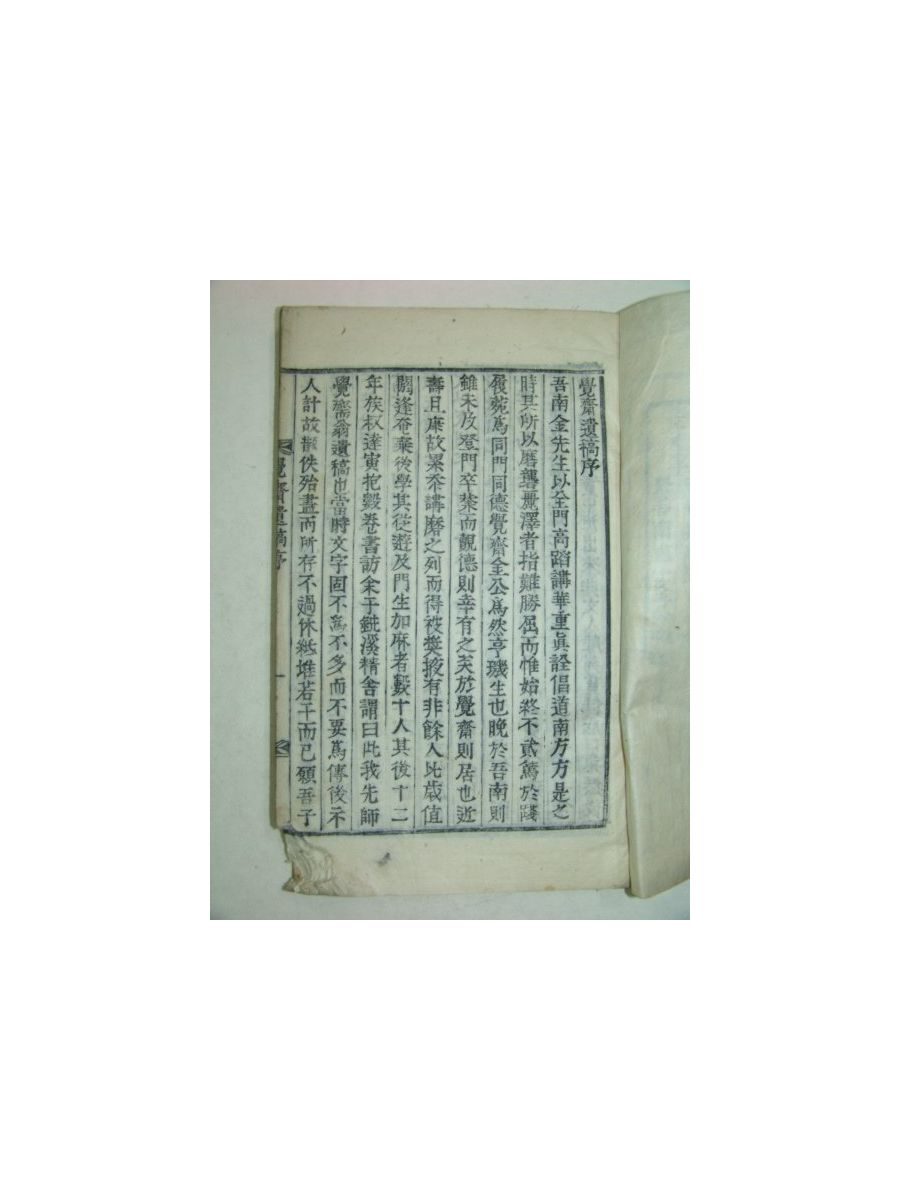 覺齋遺稿序
吾南金先生以全門高蹈講華重眞詮倡道南方方是之
時其所以磨礱麗澤者指難勝屈而惟始終不貳篤於踐
履菀爲同門同德覺齋金公爲然亨璣生也晚於吾南則
雖未及登門卒業而覿德則幸有之矣於覺齋則居也近
壽且康故累忝講磨之列而得被奬掖有非餘人比歲值
閼逢奄棄後學其從遊及門生加麻者數十人其後十二
年族叔達寅抱數卷書訪余于銑溪精舍謂曰此我先師
覺齋翁遺稿也當時文字固不爲不多而不要爲傳後示
人計故散佚殆盡而所存不過休紙堆若干而已願吾子
覺齋遺稿序
一